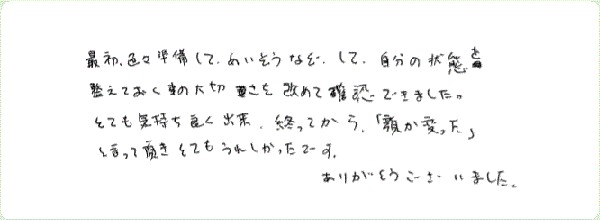 最初、色々準備して、めいそうなど、して、自分の状態を
整えておく事の大切さを改めて確認できました。
とても気持ち良く出来、終ってから、「顔が変った」
と言って頂きとてもうれしかったです。
ありがとうございました。